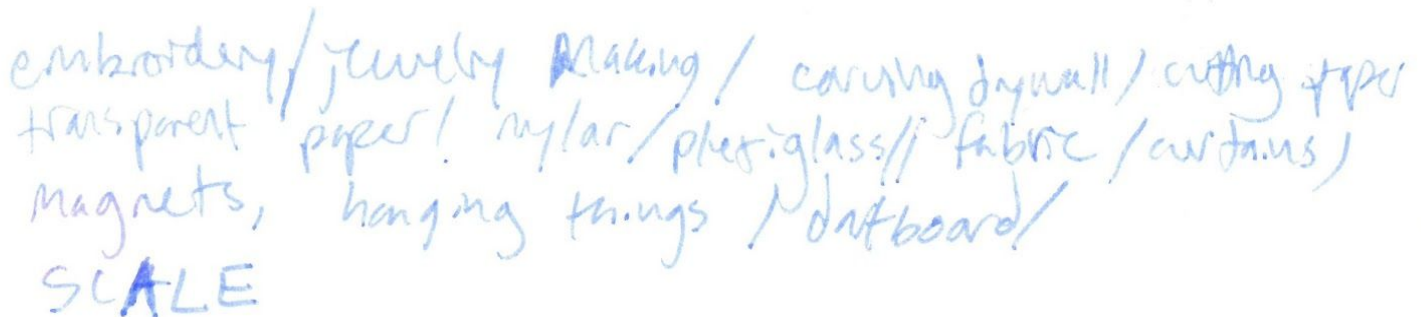 embroidery / jewelry Making / carving drywall / cutting paper
transparent paper / mylar / plexiglass // fabric / curtains /
magnets, hanging things / dartboard /
SCALE